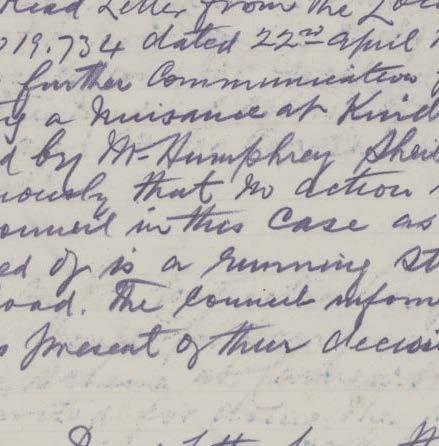 Read Letter from the Loc
019.734 dated 22nd April
further Communication
a nuisance at Kind
d by Mr Humphrey Shei
iously that no action
ouncil in this Case as
ed of is a running st
oad. The Council inform
s present of their decis